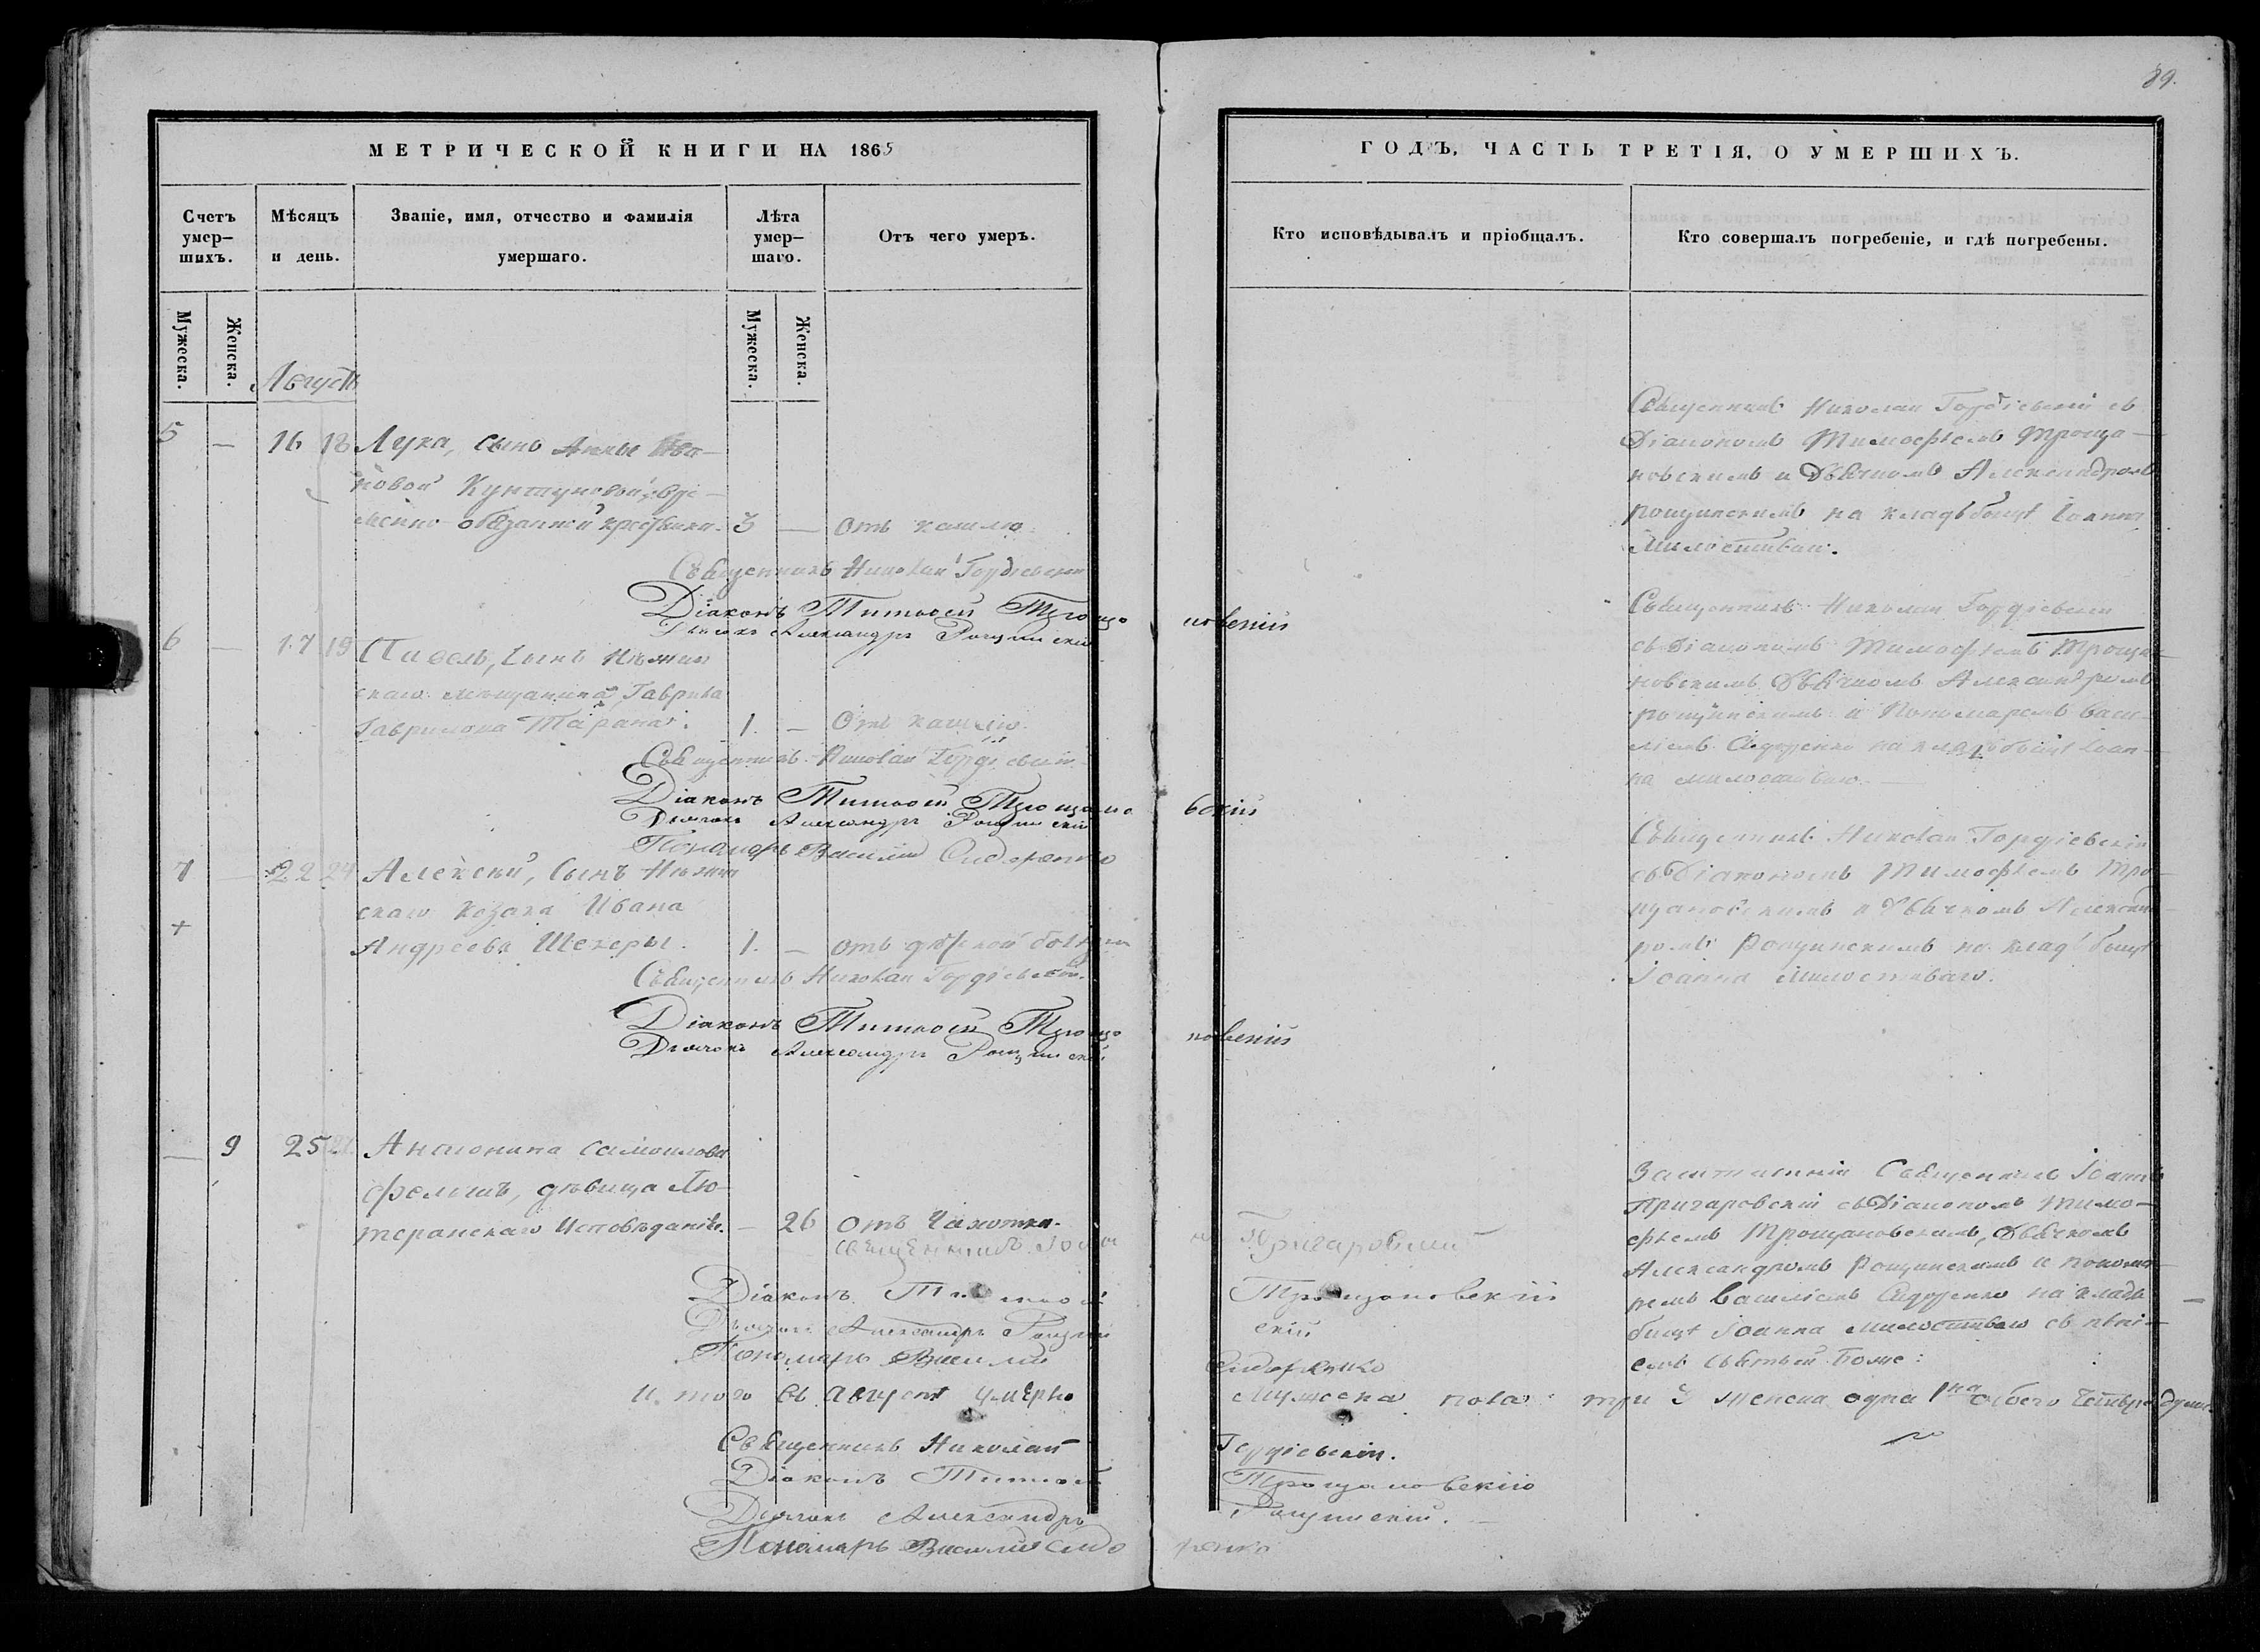 89.
МЕТРИЧЕСКОЙ КНИГИ НА 1865
ГОДЪ, ЧАСТЬ ТРЕТІЯ, О УМЕРШИХЪ.
Счетъ умер–шихъ.
Мѣсяцъ и день.
Званіе, имя, отчество и фамилія умершаго.
Лѣта умер–шаго.
Отъ чего умеръ.
Кто исповѣдывалъ и пріобщалъ.
Кто совершалъ погребеніе, и гдѣ погребены.
Мужеска.
Женска.
Мужеска.
Женска.
Августъ
5 — 16 18 Лука, сынъ Анны Ива-
новой
менно-обязанной 3 — отъ кашлю
Священникъ Николай Гордіевскій
Діаконъ Тимоѳей Трощановскій
Дьячокъ Александръ Рощинскій
Священникъ Николай Гордіевскій съ
Діакономъ Тимофѣемъ Троща-
новскимъ и Дьячкомъ Александромъ
Рощинскимъ на кладбищѣ Іоанна
Милостиваго.
6 — 17 19 Павелъ, сынъ Нѣжин
скаго мѣщанина Гаврила
Гаврилова Тарана. 1. — Отъ кашлю.
Священникъ Николай Гордіевскій
Діаконъ Тимоѳей Трощановскій
Дьячокъ Александръ Рощинскій
Пономарь Василий Сидоренко
Священникъ Николай Гордіевскій
съ Діакономъ Тимофѣемъ Троща-
новскимъ Дьячкомъ Александромъ
Рощинскимъ и Пономаремъ Васи-
ліемъ Сидоренко на кладбищѣ Іоан-
на милостиваго.
7 — 22 24 Алексѣй, сынъ Нѣжин
скаго козака Ивана
+
Андреева Шекеры. 1. — отъ
Священникъ Николай Гордіевскій.
Діаконъ Тимоѳей Трощановскій
Дьячокъ Александръ Рощинскій
Священникъ Николай Гордіевскій
съ Діакономъ Тимофѣемъ Тро-
щановскимъ и Дьячкомъ Александ-
ромъ Рощинскимъ на кладбищѣ
Іоанна Милостиваго.
— 9 25 Антонина Самоилова
дѣвица Лю-
теранскаго Исповѣданія. — 26 отъ Чахотки.
Священникъ Іоаннъ Пригаровскій
Діаконъ Тимоѳей Трощановскій
Дьячокъ Александръ Рощинскій
Пономарь Василий Сидоренко
Священникъ Іоаннъ
Пригаровскій съ Діакономъ Тимо-
фѣемъ Трощановскимъ, Дьячкомъ
Александромъ Рощинскимъ и понома-
ремъ Василіемъ Сидоренко на клад-
бищѣ Іоанна Милостиваго съ пѣні-
емъ Святый Боже:
Итого въ Августѣ умерло мужеска пола три 3 женска одна 1на обоего четыре души.
Священникъ Николай Гордіевскій.
Діаконъ Тимоѳей Трощановскій
Дьячокъ Александръ Рощинскій.
Пономарь Василий Сидоренко